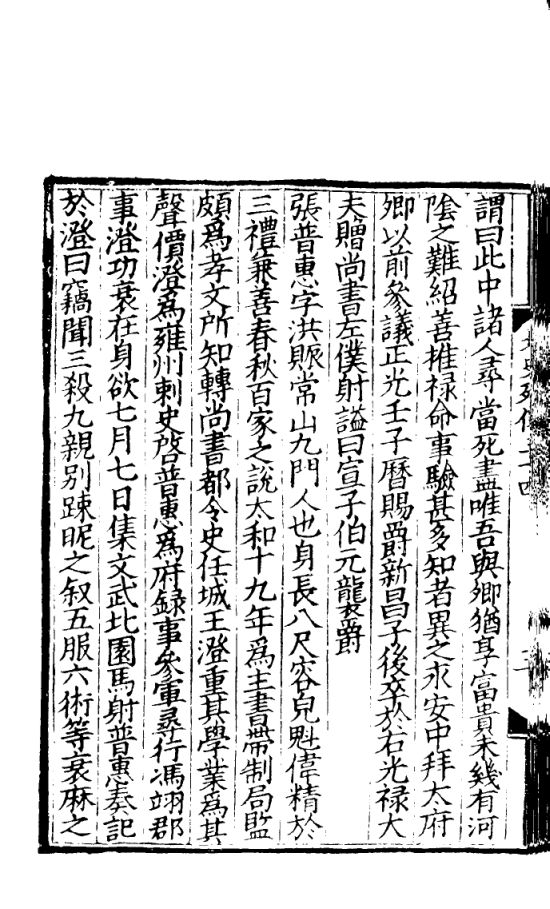 謂曰此中諸人尋當死盡唯吾與卿猶享富貴未幾有河
陰之難紹善推禄命事驗甚多知者異之永安中拜太府
卿以前參議正光壬子曆賜爵新昌子後卒於右光禄大
夫贈尚書左僕射謚曰宣子伯元襲爵
張普惠字洪賑常山九門人也身長八尺容皃魁偉精於
三禮兼善春秋百家之說太和十九年爲主書帶制局監
頗爲孝文所知轉尚書都令史任城王澄重其學業爲其
聲價澄爲雍州刺史啓普惠爲府録事參軍尋行馮翊郡
事澄功衰在身欲七月七日集文武北園馬射普惠奏記
於澄曰竊聞三殺九親别踈昵之叙五服六術等衰麻之